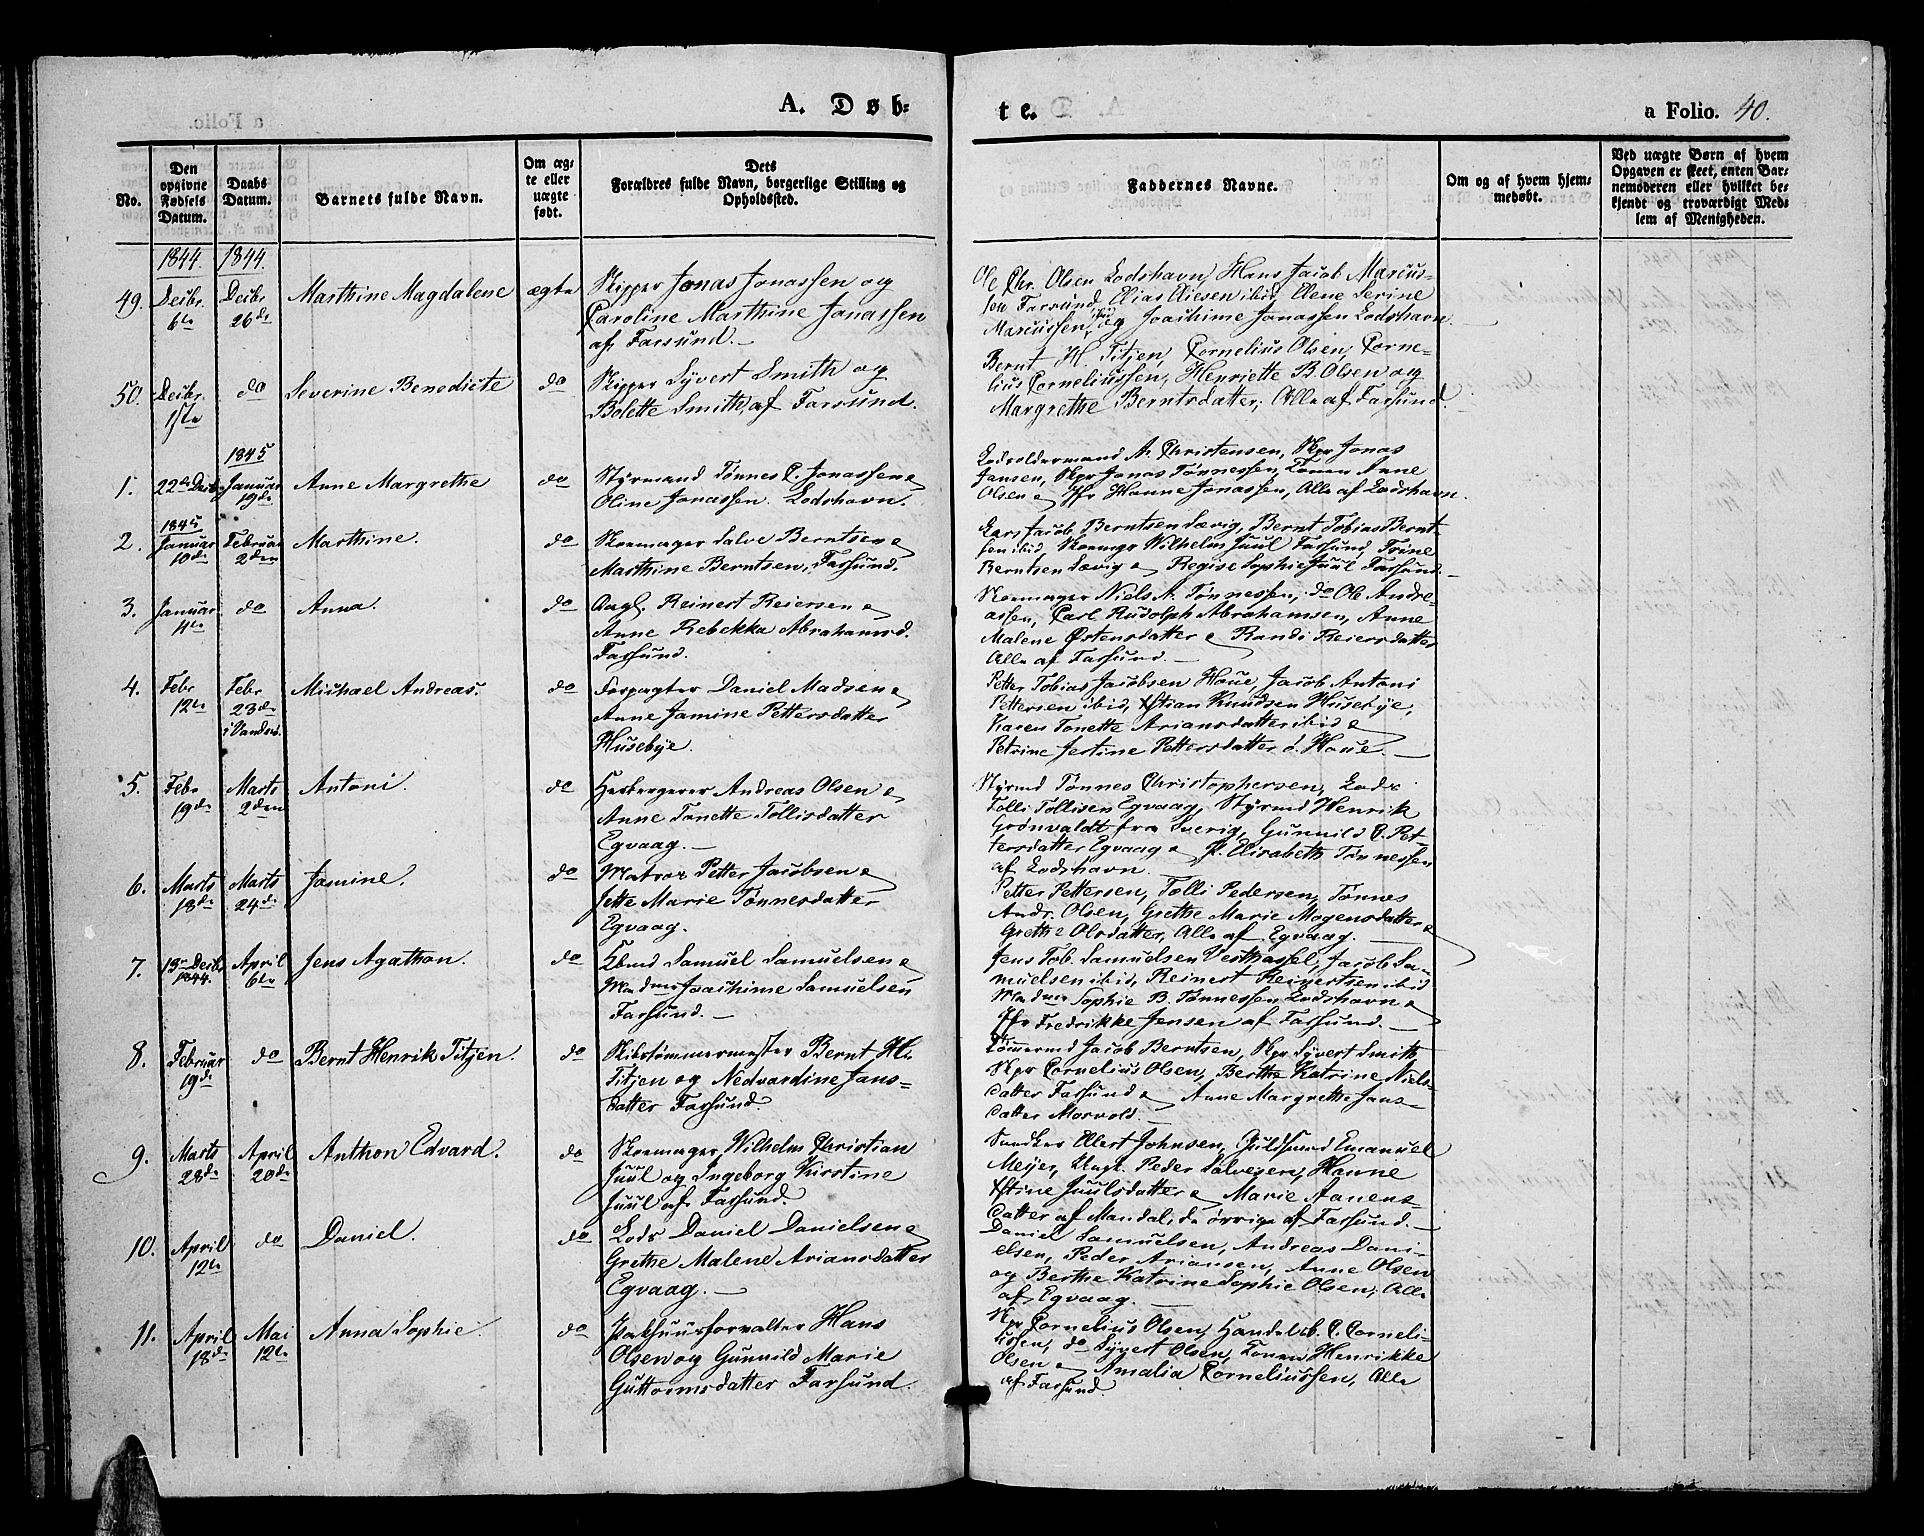 A. Døb-
te.
a Folio. 40.
No.
Den opgivne Fødsels Datum.
Daabs Datum.
Barnets fulde Navn.
Om ægte eller uægte født.
Dets Forældres fulde Navn, borgerlige Stilling og Opholdssted.
Faddernes Navne.
Om og af hvem hjemmedøbt.
Ved uægte Børn af hvem Opgaven er skeet, enten Barnemoderen eller hvilket bekjendt og troværdigt Medlem af Menigheden.
1844. 1844.
49. Decbr. 6te Decbr. 26de Marthine Magdalene ægte
Skipper Jonas Jonassen og
Caroline Marthine Jonassen
af Farsund.
Ole Chr. Olsen Lodshavn, Hans Jacob Marcus-
sen Farsund, Elias Eliesen ibid, Elene Serine
Marcussen ibid og Joachime Jonassen Lodshavn.
50. Decbr. 1ste do Severine Benedicte do
Skipper Syvert Smith og
Bolette Smith af Farsund.
Bernt H. Titjen, Cornelius Olsen, Corne-
lius Corneliussen, Henriette B. Olsen og
Margrethe Berntsdatter, Alle af Farsund.
1845
1. 22de Decbr Januar 19de Anne Margrethe do
Styrmand Tønnes C. Jonassen &
Oline Jonassen Lodshavn.
Lodsoldermand A. Christensen, Skpr Jonas
Jansen, Skpr Jonas Tønnessen, Konen Anne
Olsen & Jfr Hanne Jonassen, Alle af Lodshavn.
1845
2. Januar 10de Februar 2den Marthine. do
Skomager Salve Berntsen &
Marthine Berntsen, Farsund.
Lars Jacob Berntsen Lævig, Bernt Tobias Bernt-
sen ibid, Skomagr Wilhelm Juul Farsund, Trine
Berntsen Lævig & Regise Sophie Juul Farsund.
3. Januar 4te do Anna. do
Ungk. Reinert Reiersen &
Anne Rebekka Abrahamsd.
Farsund.
Skomager Niels A. Tønnessen, do Ole Andre-
assen, Carl Rudolph Abrahamsen, Anne
Malene Østensdatter & Randi Reiersdatter
Alle af Farsund.
4. Febr 12te Febr 23de i Vandsø. Michael Andreas. do
Forpagter Daniel Madsen &
Anne Jamine Pettersdatter
Husebye.
Petter Tobias Jacobsen Houe, Jacob Antoni
Pettersen ibid, Xstian Knudsen Husebye,
Karen Tonette Ariansdatter ibid &
Petrine Jertine Pettersdatter d. Houe.
5. Febr 19de Marts 2den Antoni. do
Herbergerer Andreas Olsen &
Anne Tonette Tollisdatter
Egvaag.
Styrmd Tønnes Christophersen, Lods
Tolli Tollisen Egvaag, Styrmd Henrik
Grönvaldt fra Sverig, Gunnild C. Pet-
tersdatter Egvaag & J. Elisabeth Tønnessen
af Lodshavn.
6. Marts 18de Marts 24de Jamine. do
Matros Petter Jacobsen &
Jette Marie Tønnesdatter
Egvaag.
Petter Pettersen, Tolli Pedersen, Tønnes
Andr. Olsen, Grethe Marie Mogensdatter &
Grethe Olsdatter, Alle af Egvaag.
7. 13de Decbr 1844. April 6te Jens Agathon. do
Samuel Samuelsen &
Madme Joachime Samuelsen
Farsund.
Jens Tob. Samuelsen Vesthassel, Jacob Sa-
muelsen ibid, Reinert Reinertsen ibid
Madme Sophie B. Tønnessen Lodshavn &
Jfr Fredrikke Jensen af Farsund.
8. Februar 19de do Bernt Henrik Titjen. do
Skibstømmermester Bernt H.
Titjen og Nedvardine Jans-
datter Farsund.
Tømmermd Jacob Berntsen, Skpr Syvert Smith
Skpr Cornelius Olsen, Berthe Katrine Niels-
datter Farsund & Anne Margrethe Jans-
datter Morvold.
9. Marts 28de April 20de Anthon Edvard. do
Skomager Wilhelm Christian
Juul og Ingeborg Kirstine
Juul af Farsund.
Snedker Ellert Johnsen, Guldsmed Emanuel
Meyer, Ungk. Peder Salvesen, Hanne
Xstine Juulsdatter & Marie Aanens-
datter af Mandal, de øvrige af Farsund.
10. April 12te do Daniel. do
Lods Daniel Danielsen &
Grethe Malene Ariansdatter
Egvaag.
Daniel Samuelsen, Andreas Dani-
elsen, Peder Ariansen, Anne Olsen
og Berthe Katrine Sophie Olsen, Alle
af Egvaag.
11. April 18de Mai 12te Anna Sophie. do
Pakhuusforvalter Hans
Olsen og Gunnild Marie
Guttormsdatter Farsund.
Skpr Cornelius Olsen, Handelsb. C. Corneli-
ussen, do Syvert Olsen, Konen Henrikke
Olsen & Amalia Corneliussen, Alle
af Farsund.